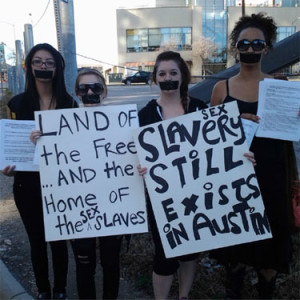 LAND OF
the Free
...AND the
Home of
the SEX SLAVES
SEX
SLAVERY
STILL
EXISTS
iN AUSTiN